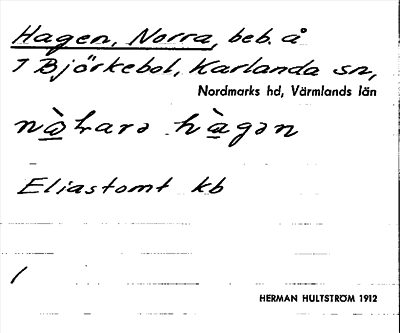 Hagen, Norra, beb. å
1 Björkebol, Karlanda sn,
Nordmarks hd, Värmlands län
hàgən
Eliastomt kb
/
HERMAN HULTSTRÖM 1912